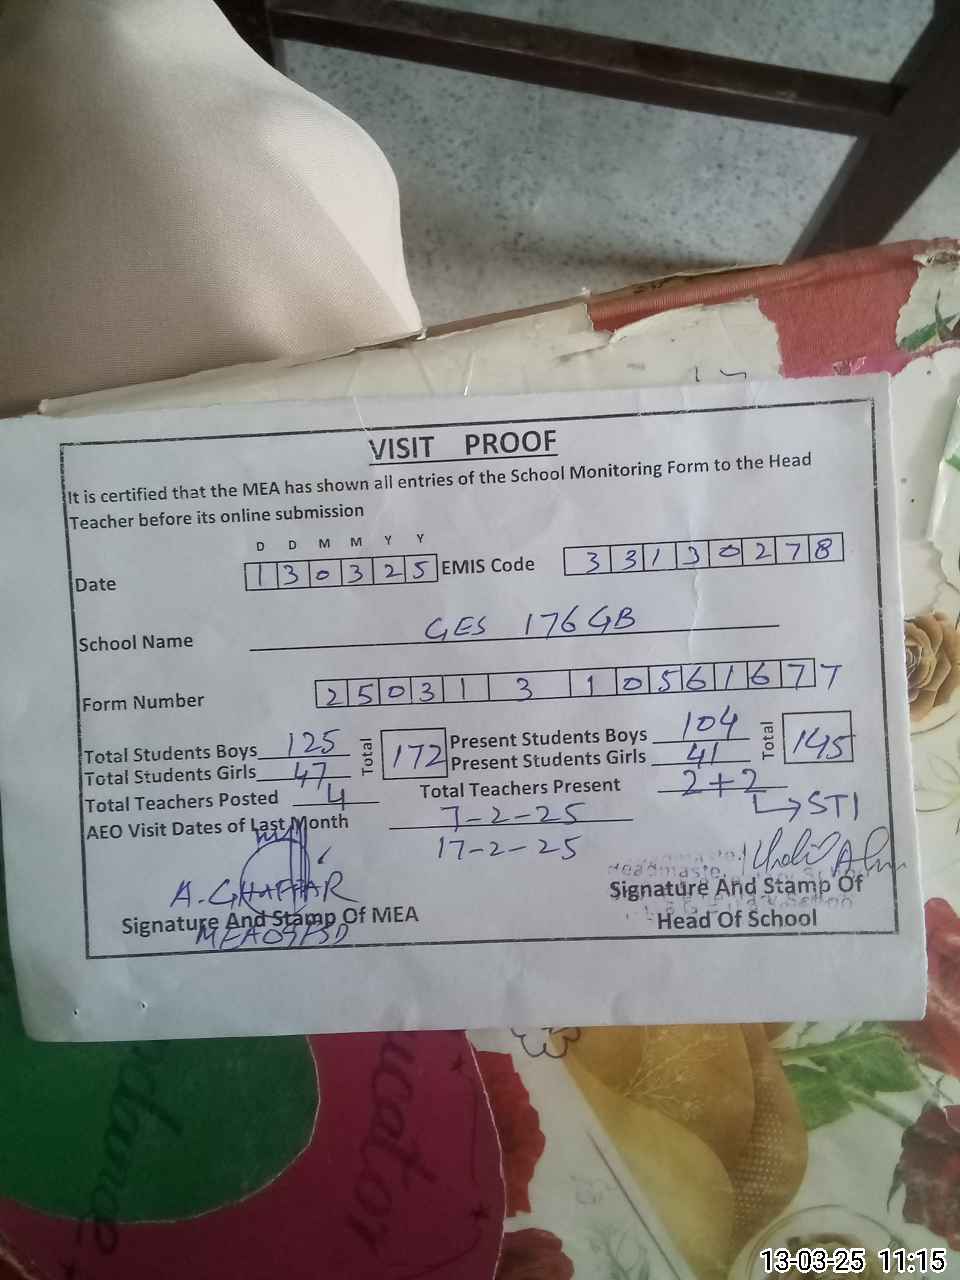 VISIT PROOF
It is certified that the MEA has shown all entries of the School Monitoring Form to the Head
Teacher before its online submission
D D M M Y Y
Date 130325 EMIS Code 33130278
School Name GES 176 GB
Form Number 2503131056167 7
Total Students Boys 125 Total 172 Present Students Boys 104 Total 145
Total Students Girls 47 Present Students Girls 41
Total Teachers Posted 4 Total Teachers Present 2+2 → STI
AEO Visit Dates of Last Month 7-2-25
17-2-25
A. GHAFFAR
Signature And Stamp Of MEA
Signature And Stamp Of
Head Of School
ucator
13-03-25 11:15